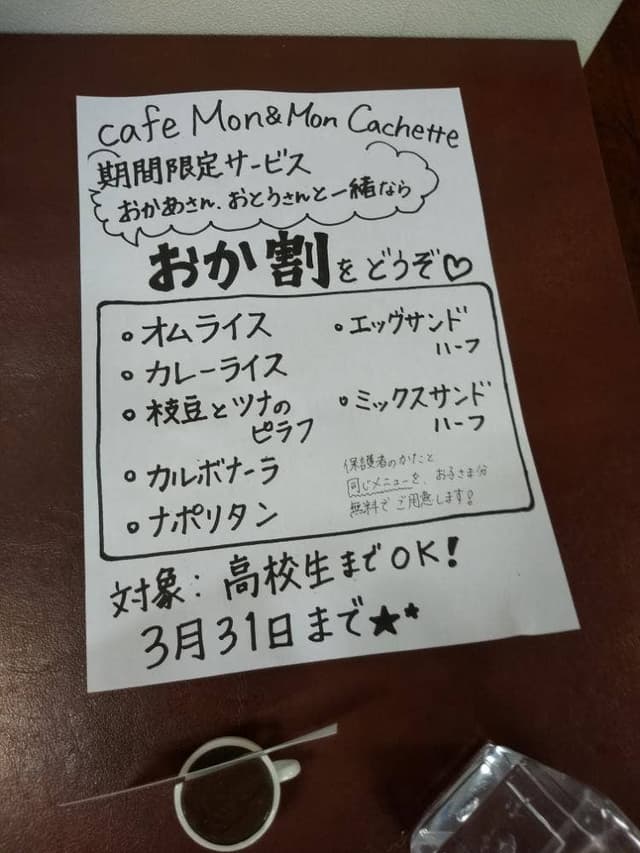 cafe Mon&Mon Cachette
期間限定サービス
おかあさん、おとうさんと一緒なら
おか割をどうぞ♡
・オムライス
・カレーライス
・枝豆とツナの
ピラフ
・カルボナーラ
・ナポリタン
・エッグサンド
ハーフ
・ミックスサンド
ハーフ
保護者のかたと
同じメニューを、お子さま分
無料でご用意します!
対象:高校生までOK!
3月31日まで★*